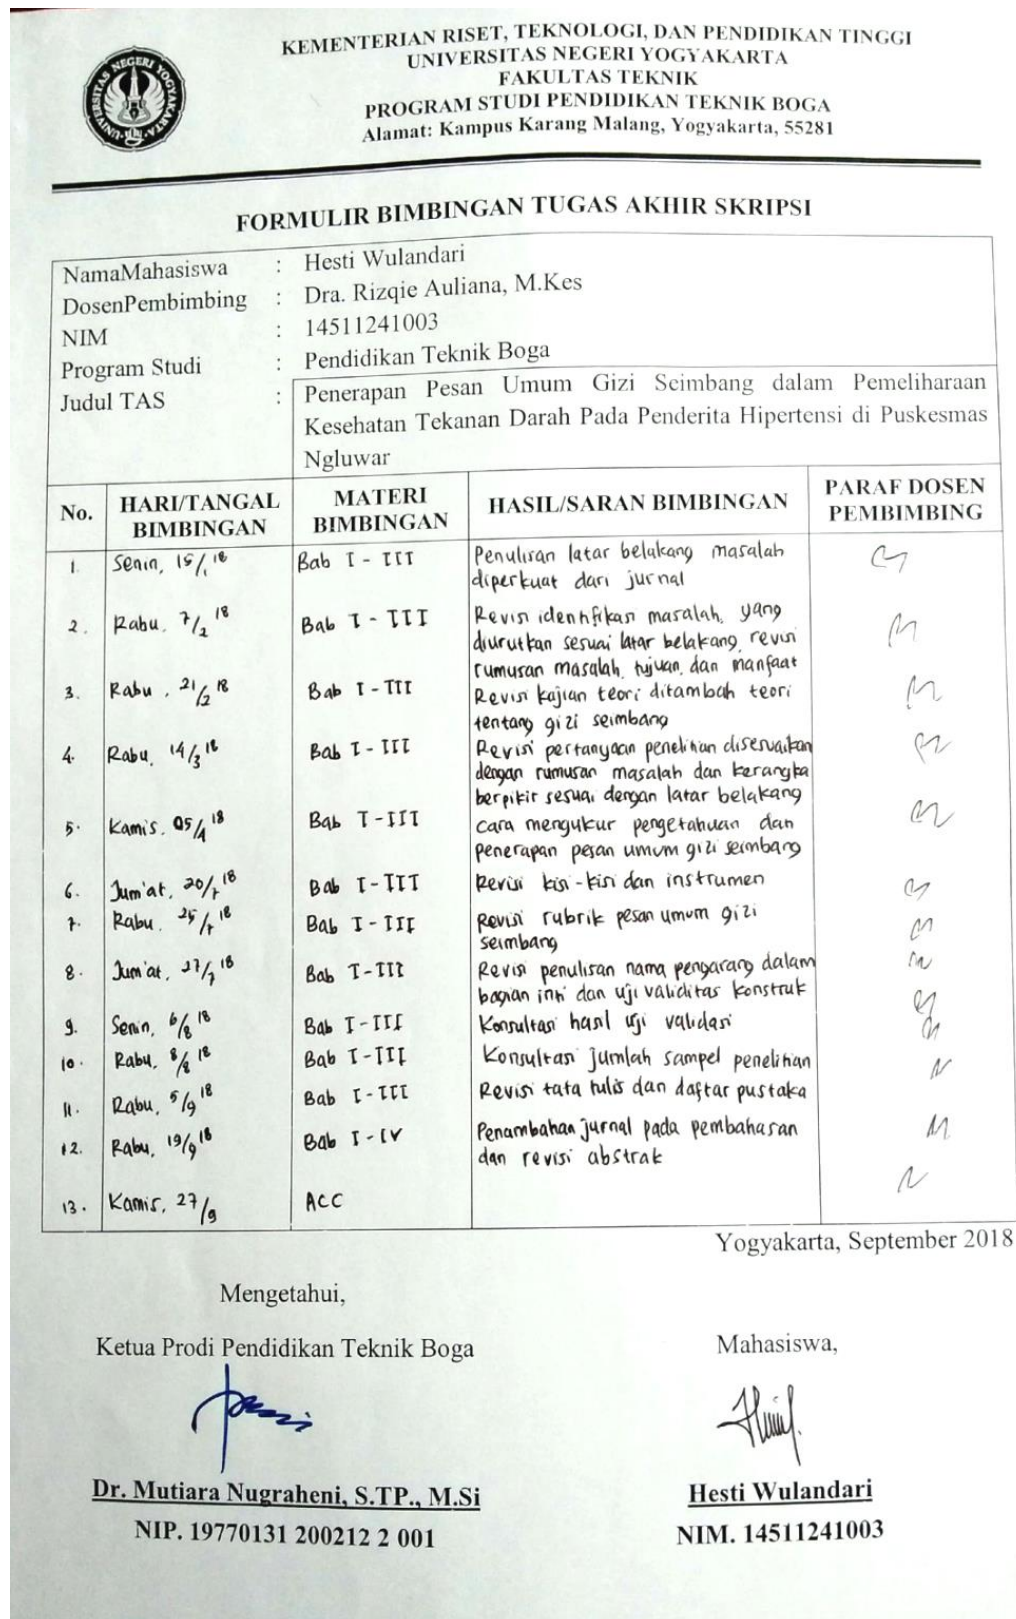 KEMENTERIAN RISET, TEKNOLOGI, DAN PENDIDIKAN TINGGI
UNIVERSITAS NEGERI YOGYAKARTA
FAKULTAS TEKNIK
PROGRAM STUDI PENDIDIKAN TEKNIK BOGA
Alamat: Kampus Karang Malang, Yogyakarta, 55281
UNIVERSITAS NEGERI YOGYAKARTA
FORMULIR BIMBINGAN TUGAS AKHIR SKRIPSI
NamaMahasiswa : Hesti Wulandari
DosenPembimbing : Dra. Rizqie Auliana, M.Kes
NIM : 14511241003
Program Studi : Pendidikan Teknik Boga
Judul TAS : Penerapan Pesan Umum Gizi Seimbang dalam Pemeliharaan
Kesehatan Tekanan Darah Pada Penderita Hipertensi di Puskesmas
Ngluwar
No. HARI/TANGAL BIMBINGAN MATERI BIMBINGAN HASIL/SARAN BIMBINGAN PARAF DOSEN PEMBIMBING
1. Senin, 15/1 18 Bab I - III Penulisan latar belakang masalah
diperkuat dari jurnal
2. Rabu, 7/2 18 Bab I - III Revisi identifikasi masalah, yang
diurutkan sesuai latar belakang, revisi
rumusan masalah, tujuan, dan manfaat
3. Rabu, 21/2 18 Bab I - III Revisi kajian teori ditambah teori
tentang gizi seimbang
4. Rabu, 14/3 18 Bab I - III Revisi pertanyaan penelitian disesuaikan
dengan rumusan masalah dan kerangka
berpikir sesuai dengan latar belakang
5. Kamis, 05/4 18 Bab I - III cara mengukur pengetahuan dan
penerapan pesan umum gizi seimbang
6. Jum'at, 20/7 18 Bab I - III Revisi kisi-kisi dan instrumen
7. Rabu, 25/7 18 Bab I - III Revisi rubrik pesan umum gizi
seimbang
8. Jum'at, 27/7 18 Bab I - III Revisi penulisan nama pengarang dalam
bagian inti dan uji validitas konstruk
9. Senin, 6/8 18 Bab I - III Konsultasi hasil uji validasi
10. Rabu, 8/8 18 Bab I - III Konsultasi jumlah sampel penelitian
11. Rabu, 5/9 18 Bab I - III Revisi tata tulis dan daftar pustaka
12. Rabu, 19/9 18 Bab I - IV Penambahan jurnal pada pembahasan
dan revisi abstrak
13. Kamis, 27/9 ACC
Yogyakarta, September 2018
Mengetahui,
Ketua Prodi Pendidikan Teknik Boga
Mahasiswa,
Dr. Mutiara Nugraheni, S.TP., M.Si
NIP. 19770131 200212 2 001
Hesti Wulandari
NIM. 14511241003